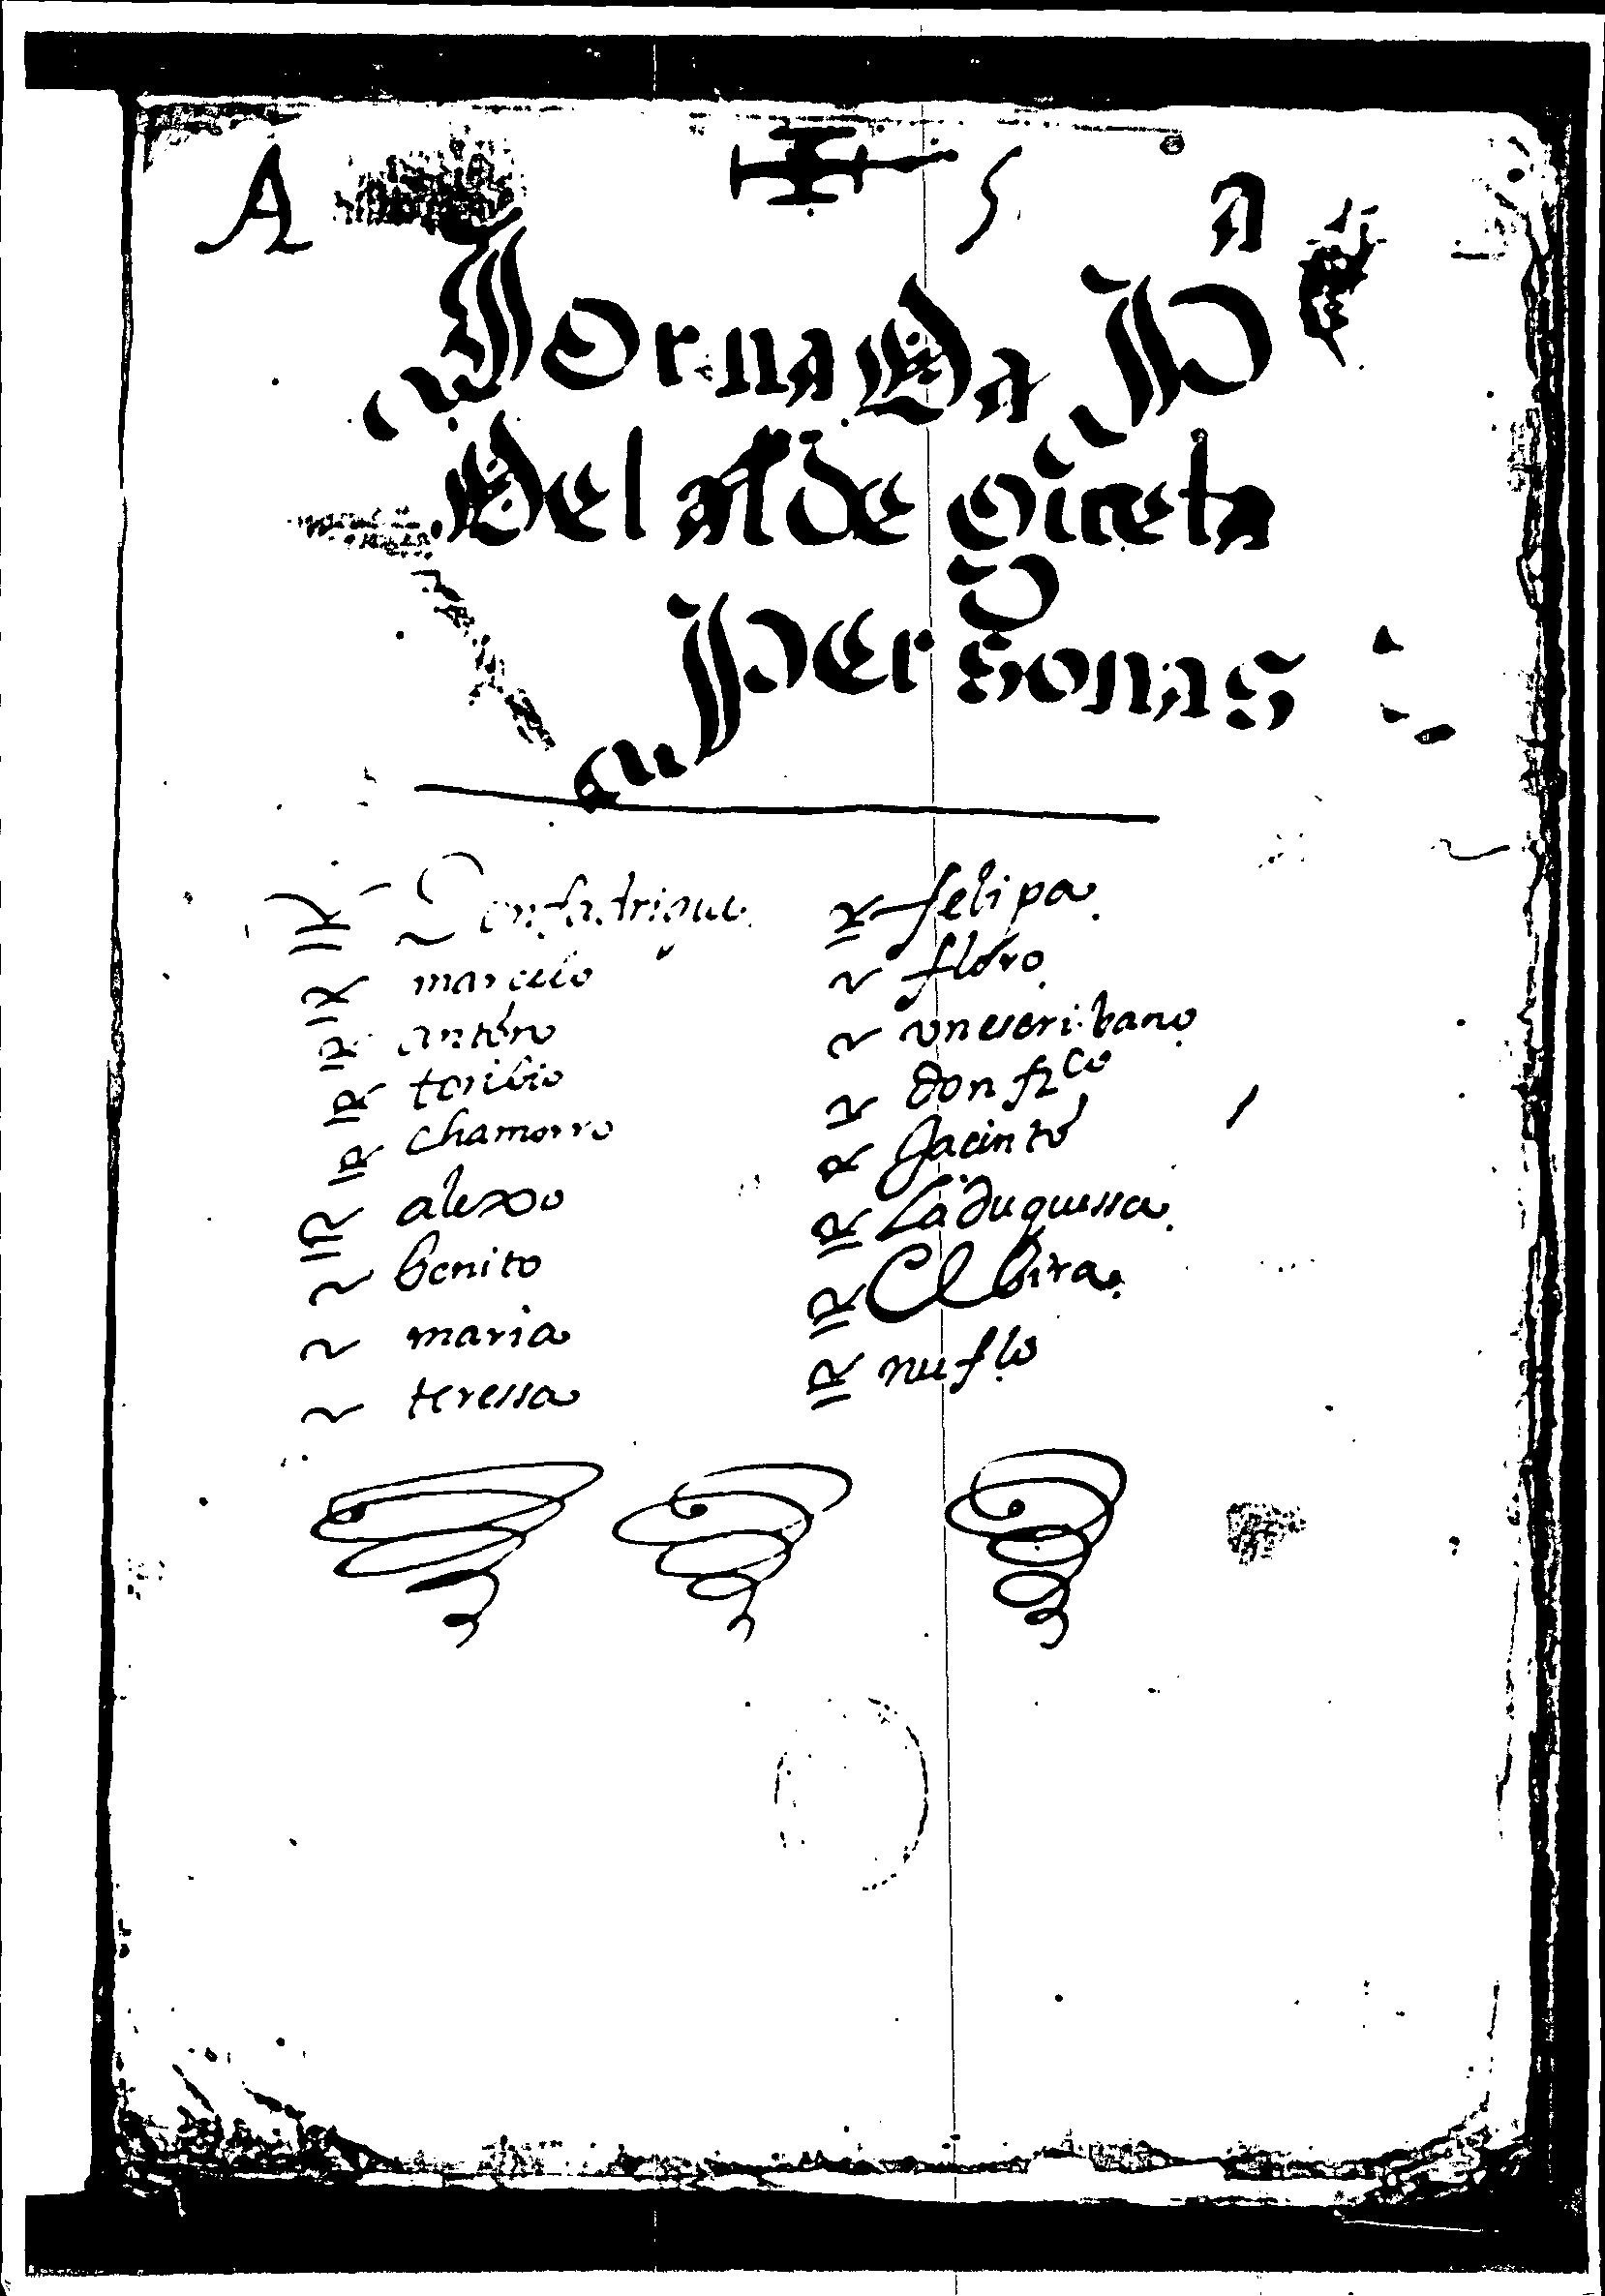 A S A
Jornada P
Del al de
Personas
Don fadrique
marcelo
anton
toribio
chamorro
alexo
benito
maria
teressa
felipa
floro
un escribano
don frco
Jacinto
La duquessa
Elbira
nuflo